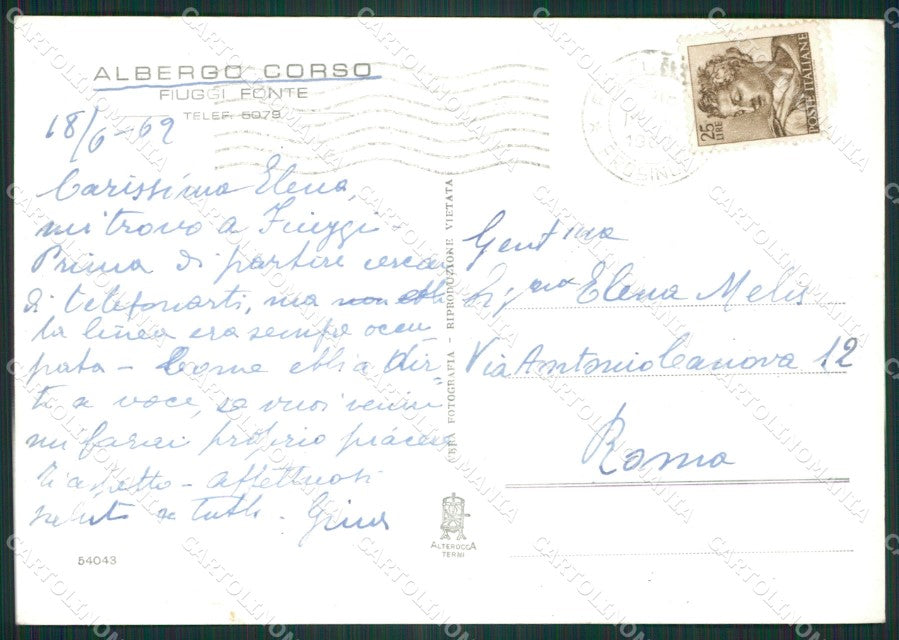 ALBERGO CORSO
FIUGGI FONTE
TELEF. 6079
18/6-69
Carissima Elena,
mi trovo a Fiuggi -
Prima di partire cercai
di telefonarti, ma non ebbi
la linea era sempre occu
pata - Come ebbi a dir
ti a voce, se vuoi venire
mi farai proprio piacere
ti aspetto - affettuosi
saluti a tutti - Gina
54043
VERA FOTOGRAFIA - RIPRODUZIONE VIETATA
ALTEROCCA
TERNI
25
LIRE
POSTE ITALIANE
Gent ma
Sig ra Elena Melis
Via Antonio Canova 12
Roma
CARTOLINOMANIA